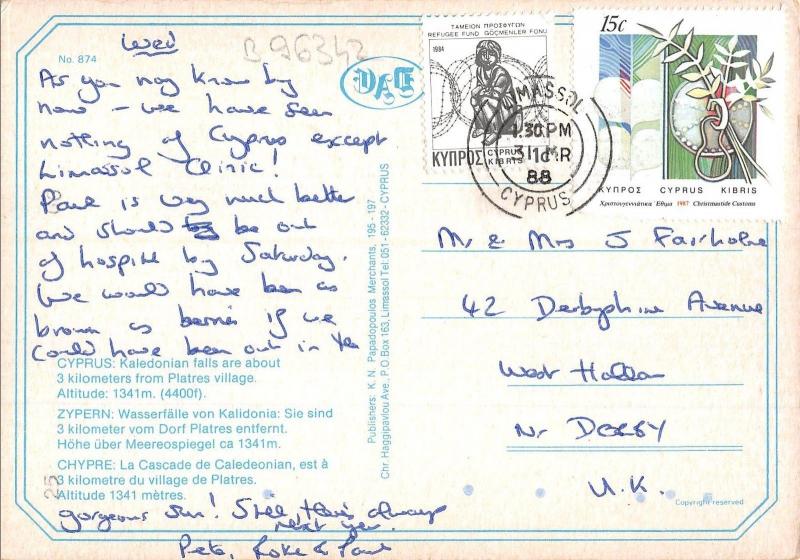 Wed
B 96342
No. 874
As you may know by
now - we have seen
nothing of Cyprus except
Limassol Clinic!
Paul is very much better
and should be out
of hospital by Saturday.
We would have been as
brown as berries if we
could have been out in the
gorgeous sun! Still, there's always
next year.
Pete, & Paul
CYPRUS: Kaledonian falls are about
3 kilometers from Platres village.
Altitude: 1341m. (4400f).
ZYPERN: Wasserfälle von Kalidonia: Sie sind
3 kilometer vom Dorf Platres entfernt.
Höhe über Meereospiegel ca 1341m.
CHYPRE: La Cascade de Caledeonian, est à
3 kilometre du village de Platres.
Altitude 1341 mètres.
25
Publishers: K. N. Papadopoulos Merchants, 195 - 197
Chr. Haggipavlou Ave., P.O Box 163, Limassol Tel: 051 - 62332 - CYPRUS
ΤΑΜΕΙΟΝ ΠΡΟΣΦΥΓΩΝ
REFUGEE FUND GÖÇMENLER FONU
1984
ΚΥΠΡΟΣ CYPRUS KIBRIS
LIMASSOL
4.30 PM
88
CYPRUS
15c
ΚΥΠΡΟΣ CYPRUS KIBRIS
Χριστουγεννιάτικα Έθιμα 1987 Christmastide Customs
Mr & Mrs J Fairholme
42 Derbyshire Avenue
West Hallam
Nr DERBY
U.K.
Copyright reserved